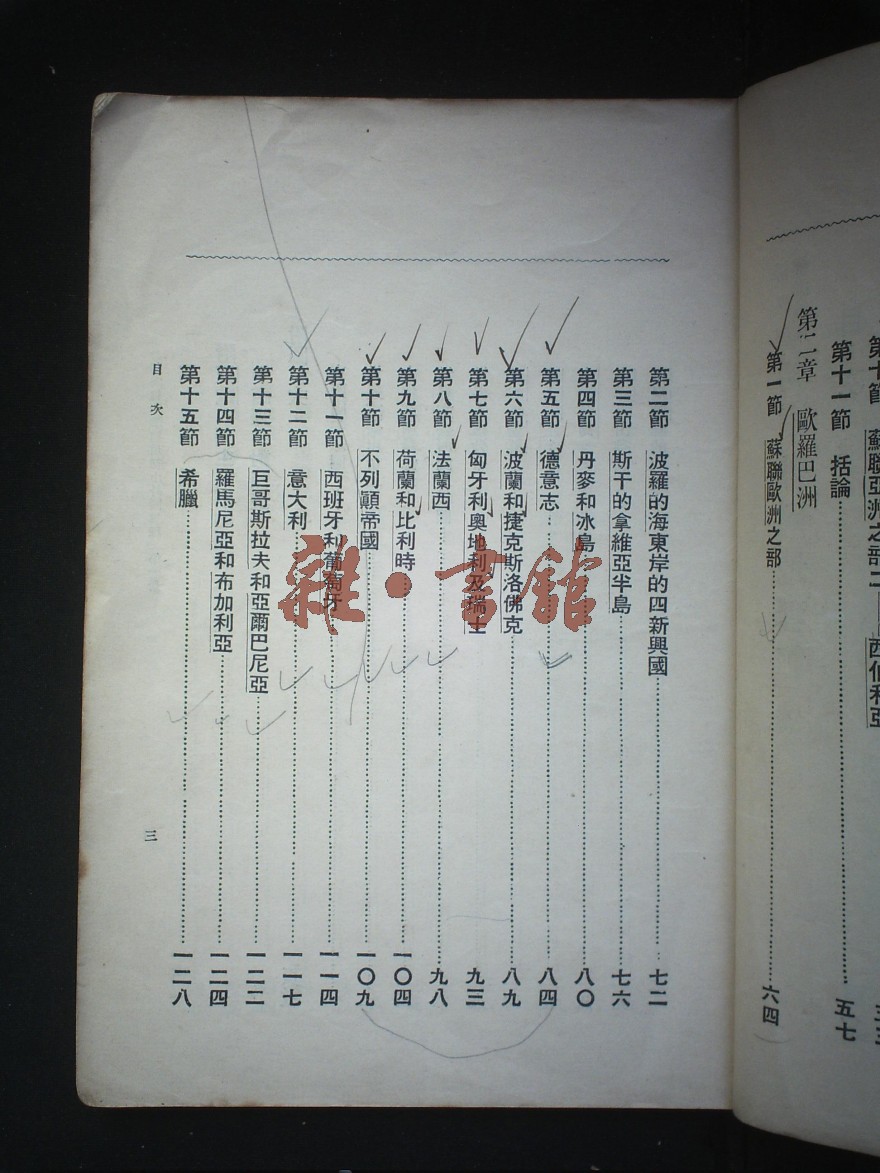 第十節 蘇聯亞洲之部二——西伯利亞
第十一節 括論 五七
第二章 歐羅巴洲
第一節 蘇聯歐洲之部 六四
第二節 波羅的海東岸的四新興國 七二
第三節 斯干的拿維亞半島 七六
第四節 丹麥和冰島 八〇
第五節 德意志 八四
第六節 波蘭和捷克斯洛佛克 八九
第七節 匈牙利奧地利及瑞士 九三
第八節 法蘭西 九八
第九節 荷蘭和比利時 一〇四
第十節 不列顛帝國 一〇九
第十一節 西班牙利葡萄牙 一一四
第十二節 意大利 一一七
第十三節 巨哥斯拉夫和亞爾巴尼亞 一二二
第十四節 羅馬尼亞和布加利亞 一二四
第十五節 希臘 一二八
目次
三
雜·書館